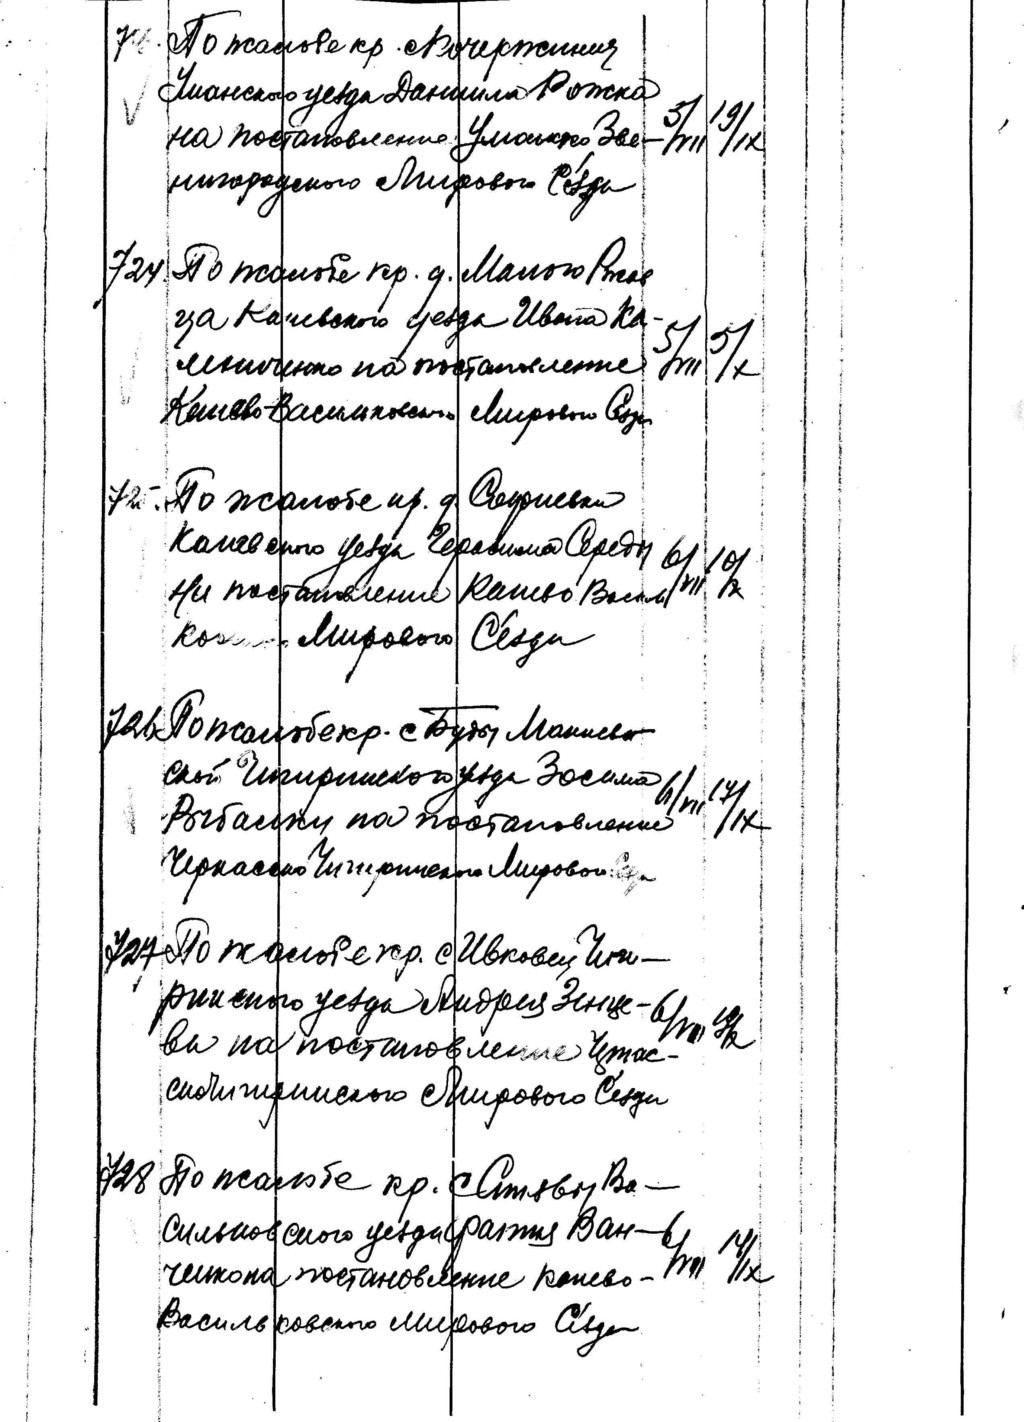 По жалобе кр. с Кочержинец
Уманского уезда Даниила Рожка
на постановление Уманско Зве- 5/VII 19/IX
нигородского Мирового Сезда
724. По жалобе кр. д. Малого Ржав
ца Каневского уезда Ивана Ка-
на постановление 5/VII 5/X
Канево-Васильковского Мирового Сезда
725. По жалобе кр. д. Софиевки
Каневского уезда Герасима Середы 6/VII 10/X
На постановление Канево Василь
Мирового Сезда
726 По жалобе кр. с Буды Макиев
ской Чигиринского уезда Зосима 6/VII 17/IX
Рыбалки на постановление
Черкасско Чигиринского Мирового Сезда
727 По жалобе кр. с Ивковец Чиги-
ринского уезда Андрея 6/VII
вы на постановление Черкас-
скоЧигиринского Мирового Сезда
728 По жалобе кр. с Ва-
сильковского уезда Ван- 6/VII 14/IX
ченкона постановление Канево-
Васильковского Мирового Сезда